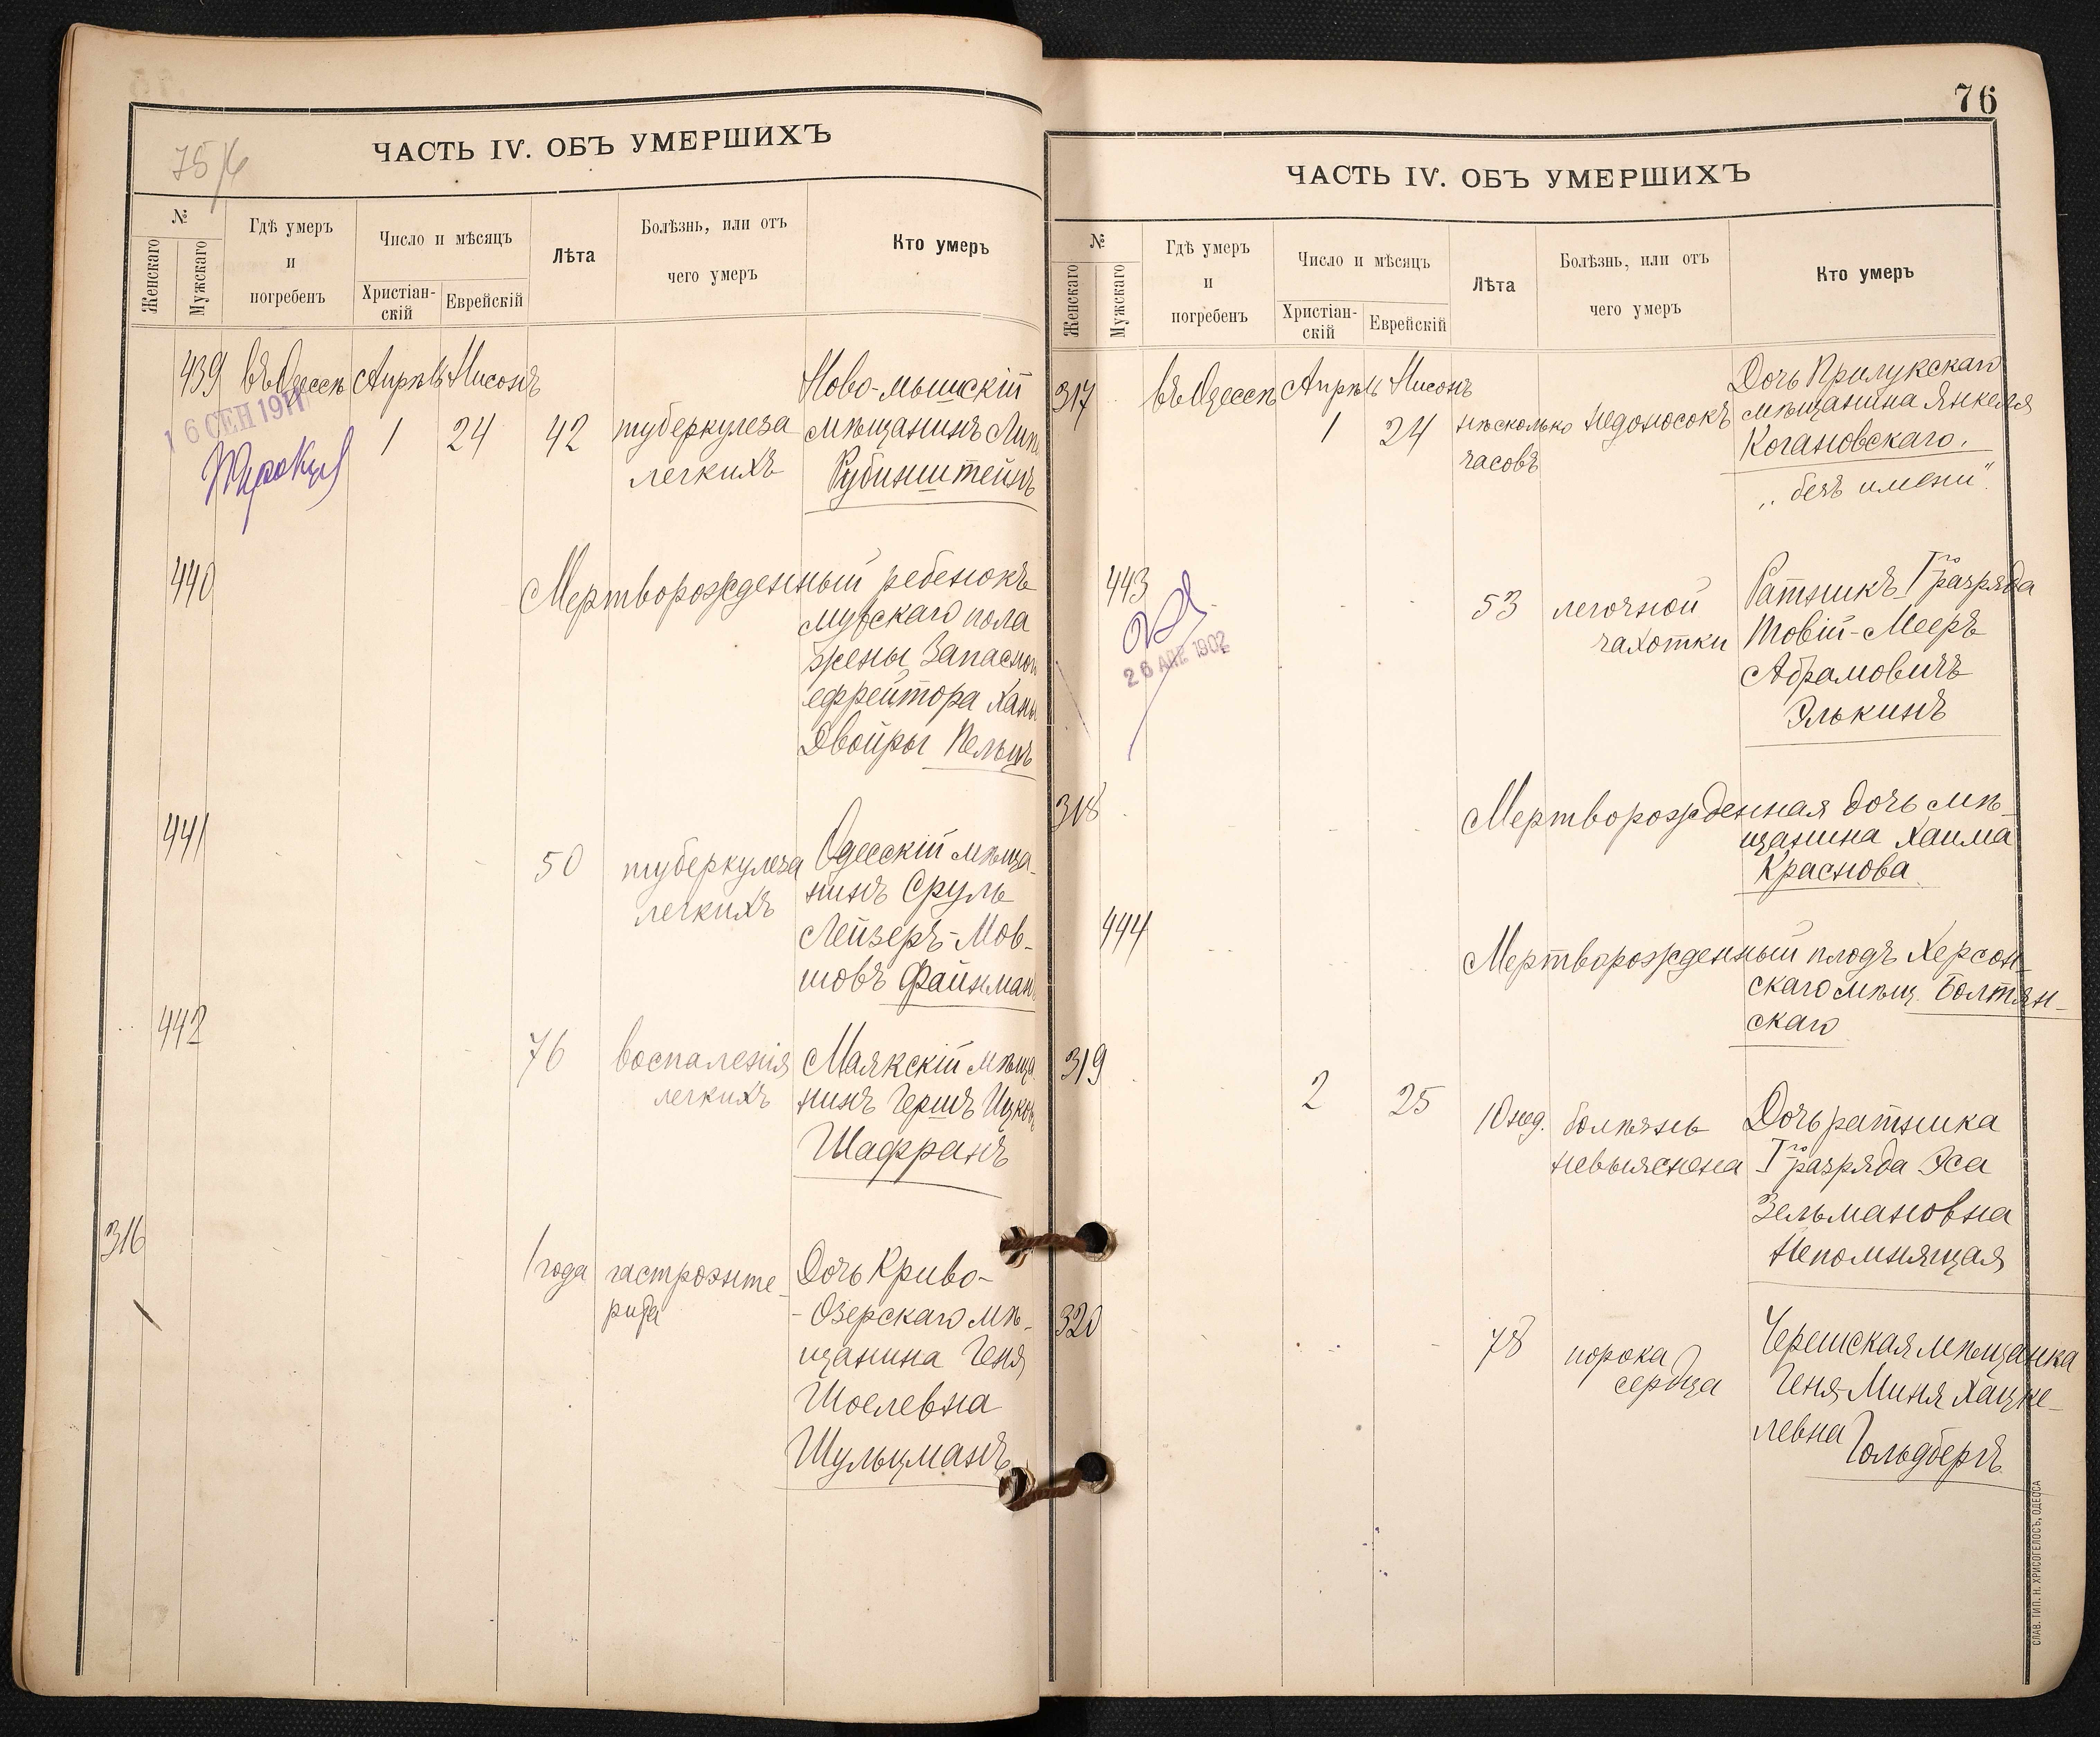 75/6
ЧАСТЬ IV. ОБЪ УМЕРШИХЪ
№
Женскаго
Мужскаго
Гдѣ умеръ
и
погребенъ
Число и мѣсяцъ
Христіан-
скій
Еврейскій
Лѣта
Болѣзнь, или отъ
чего умеръ
Кто умеръ
439 въ Одессѣ Апрѣль Нисонъ
1 24 42
туберкулеза
легкихъ
Ново-мышскій
мѣщанинъ
Рубинштейнъ
16 СЕН 1911
440
Мертворожденный ребенокъ
мужскаго пола
жены запасного
ефрейтора Ханы
Двойры Пельцъ
441
50
туберкулеза
легкихъ
Одесскій мѣща-
нинъ Сруль
Лейзеръ-Мов-
шовъ Файнманъ
442
76
воспаленія
легкихъ
Маякскій мѣща
нинъ Гершъ Ицков.
Шафранъ
316
1 года
гастроэнте-
рита
Дочь Криво-
-Озерскаго мѣ-
щанина Геня
Шоелевна
Шульцманъ
76
ЧАСТЬ IV. ОБЪ УМЕРШИХЪ
№
Женскаго
Мужскаго
Гдѣ умеръ
и
погребенъ
Число и мѣсяцъ
Христіан-
скій
Еврейскій
Лѣта
Болѣзнь, или отъ
чего умеръ
Кто умеръ
317 въ Одессѣ Апрѣль Нисонъ
1 24
нѣсколько
часовъ
недоносокъ
Дочь Прилукскаго
мѣщанина Янкеля
Когановскаго.
„безъ имени"
443
26 АПР 1902
53
легочной
чахотки
Ратникъ Iго разряда
Товій-Мееръ
Абрамовичъ
Элькинъ
318
Мертворожденная дочь мѣ-
щанина Хаима
Краснова
444
Мертворожденный плодъ Херсон-
скаго мѣщ. Болтян-
скаго
319
2 25
10 нед.
болѣзнь
невыяснена
Дочь ратника
Iго разряда Эса
Зельмановна
Непомнящая
320
78
порока
сердца
мѣщанка
Геня-Миня Хацке-
левна Гольдбергъ
СЛАВ. ТИП. Н. ХРИСОГЕЛОСЪ, ОДЕССА